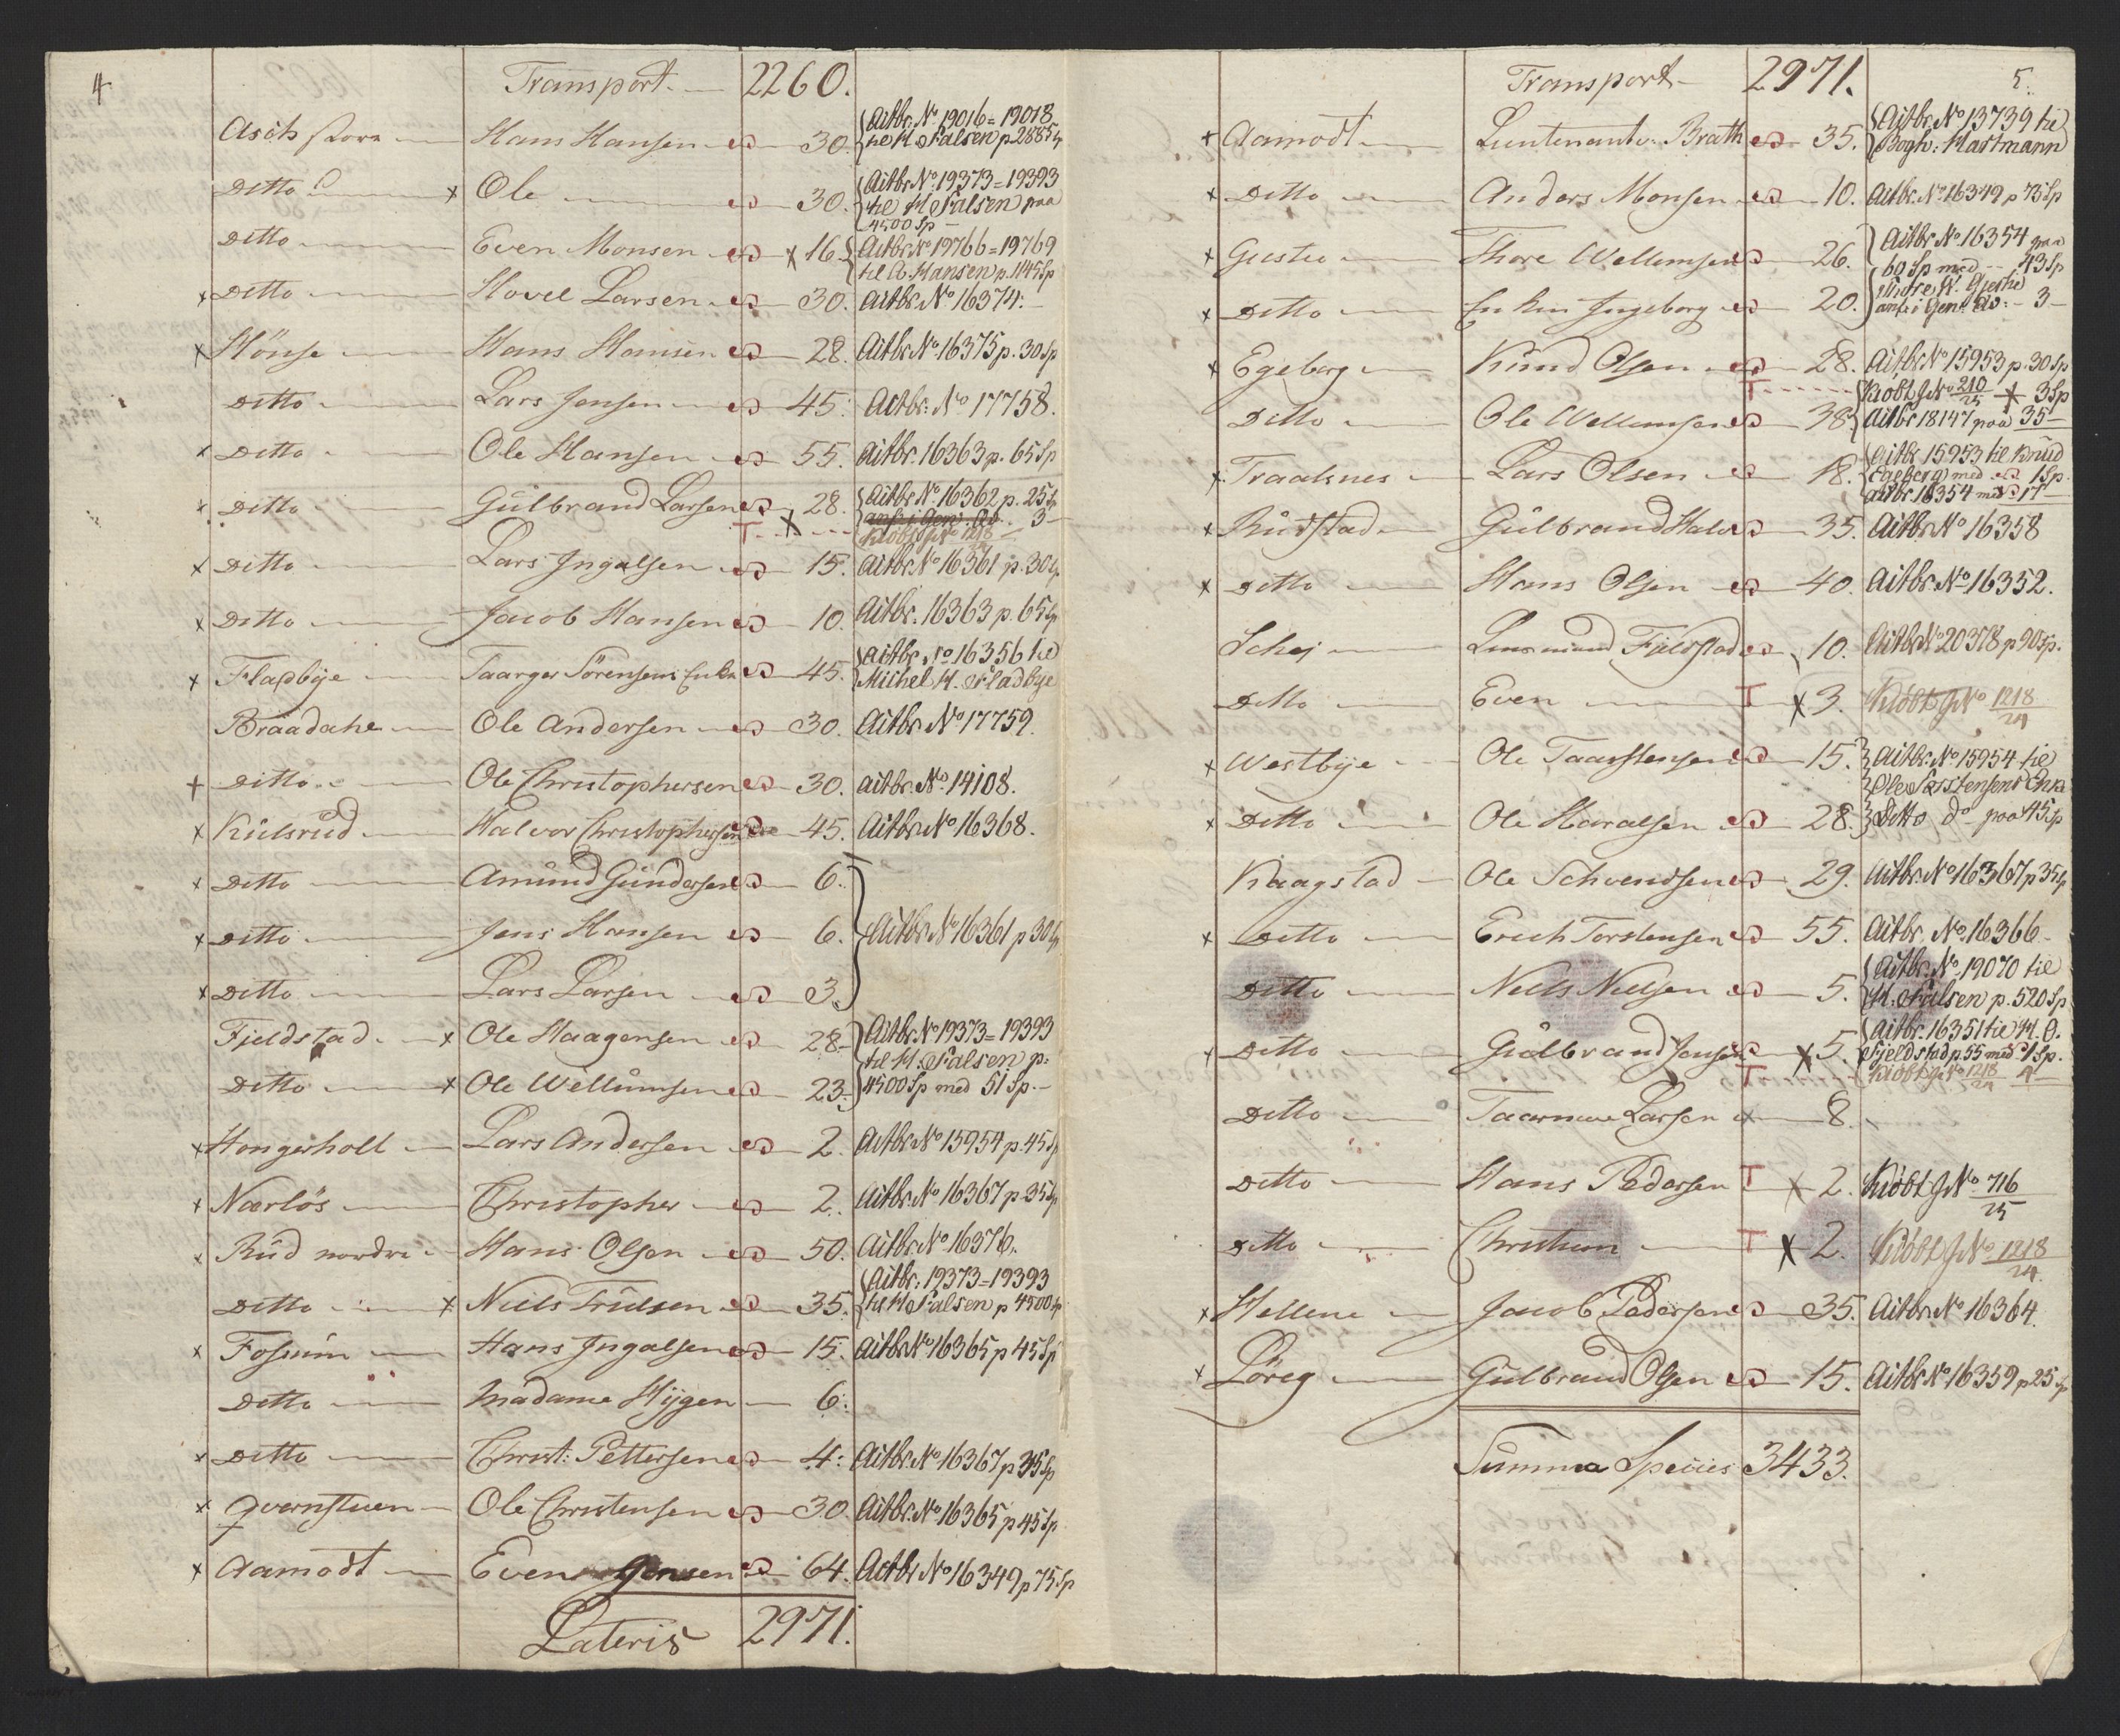 4
Transport 2260.
Asch store Hans Hansen 30. Aitbr. No 19016=19018
til H. Falsen p. 2885 Sp
Ditto × Ole 30. Aitbr No 19373=19393
til H. Falsen paa
4500 Sp
Ditto Even Monsen × 16 Aitbr No 19766=19769
til A. Hansen p. 1145 Sp
× Ditto Hovel Larsen 30. Aitbr. No 16374.
× Hönse Hans Hansen 28. Aitbr. No 16375 p. 30 Sp
Ditto Lars Jensen 45. Aitbr. No 17758.
× Ditto Ole Hansen 55. Aitbr. 16363 p. 65 Sp
× Ditto Gulbrand Larsen 28. Aitbr. No 16362 p. 25 Sp
T × anf. i Gen. 3
Kiöbt J No 1218
× Ditto Lars Ingalsen 15. Aitbr. No 16361 p. 30 Sp
× Ditto Jacob Hansen 10. Aitbr. 16363 p. 65 Sp
× Fladbye Taarger Sörensens Enke 45. Aitbr. No 16356 til
Michel H. Fladbye
Braadahe Ole Andersen 30. Aitbr No 17759.
+ Ditto Ole Christophersen 30. Aitbr. No 14108.
× Kulsrud Halvor Christophersen 45. Aitbr No 16368.
× Ditto Amund Gundersen 6.
× Ditto Jens Hansen 6. Aitbr No 16361 p 30 Sp
× Ditto Lars Larsen 3.
Fieldstad × Ole Haagensen 28 Aitbr. No 19373=19393
til H. Falsen p.
Ditto × Ole Wellumsen 23. 4500 Sp med 51 Sp.
× Hongerholt Lars Andersen 2. Aitbr. No 15954 p. 45 Sp
× Nærlös Christopher 2. Aitbr. No 16367 p. 35 Sp
× Rud nordre Hans Olsen 50. Aitbr. No 16376.
Ditto × Niels Trulsen 35. Aitbr. 19373=19393
til H. Falsen p 4500 Sp
× Fossum Hans Ingalsen 15. Aitbr No 16365 p 45 Sp
Ditto Madame Hygen 6.
× Ditto Christ: Pettersen 4. Aitbr. No 16367 p 35 Sp
× Qvernstuen Ole Christensen 30. Aitbr. No 16365 p 45 Sp
× Aamodt Even Jensen 64. Aitbr No 16349 p 75 Sp
Lateris 2971.
5.
Transport 2971.
× Aamodt Lieutenant v. Brath 35. Aitbr. No 13739 til
Bogh: Hartmann
× Ditto Anders Monsen 10. Aitbr. No 16349 p 75 Sp
× Giestie Thore Wellumsen 26. Aitbr No 16354 paa
60 Sp med 43 Sp
Thore W. Giestie
× Ditto Enken Ingeborg 20. anf. i Gen: 3
× Egeberg Knud Olsen 28. Aitbr No 15953 p. 30 Sp
T Kiöbt J No 210/25 × 3 Sp
Ditto Ole Wellumsen 38. Aitbr 18147 paa 35
× Traalsnes Lars Olsen 18. Aitbr 15953 til Knud
Egeberg med 1 Sp.
Aitbr. 16354 med 17
× Rudstad Gulbrand Halv 35. Aitbr. No 16358
× Ditto Hans Olsen 40. Aitbr. No 16352.
Schej Fieldstad 10. Aitbr No 20378 p 90 Sp.
Ditto Even T × 3. Kiöbt J No 1218/24
× Westbye Ole Taarstensen 15. Aitbr. No 15954 til
Ole Torstensens Enke
× Ditto Ole Haralsen 28. Ditto do paa 45 Sp
Kaagstad Ole Schvendsen 29. Aitbr. No 16367 p 35 Sp
× Ditto Erich Torstensen 55. Aitbr. No 16366
Ditto Niels Nielsen 5. Aitbr. No 19070 til
H. Falsen p. 520 Sp
× Ditto Gulbrand Jensen × 5. Aitbr. 16351 til H. O.
Fjeldstad p. 55 med 1 Sp.
T Kiöbt J No 1218/24 4
Ditto Larsen × 8.
Ditto Hans Pedersen T × 2. Kiöbt J No 716/25
Ditto Christian T × 2. Kiöbt J No 1218/24
× Hellene Jacob Pedersen 35. Aitbr. No 16364.
× Löreg Gulbrand Olsen 15. Aitbr No 16359 p 25 Sp
Summa Species 3433.